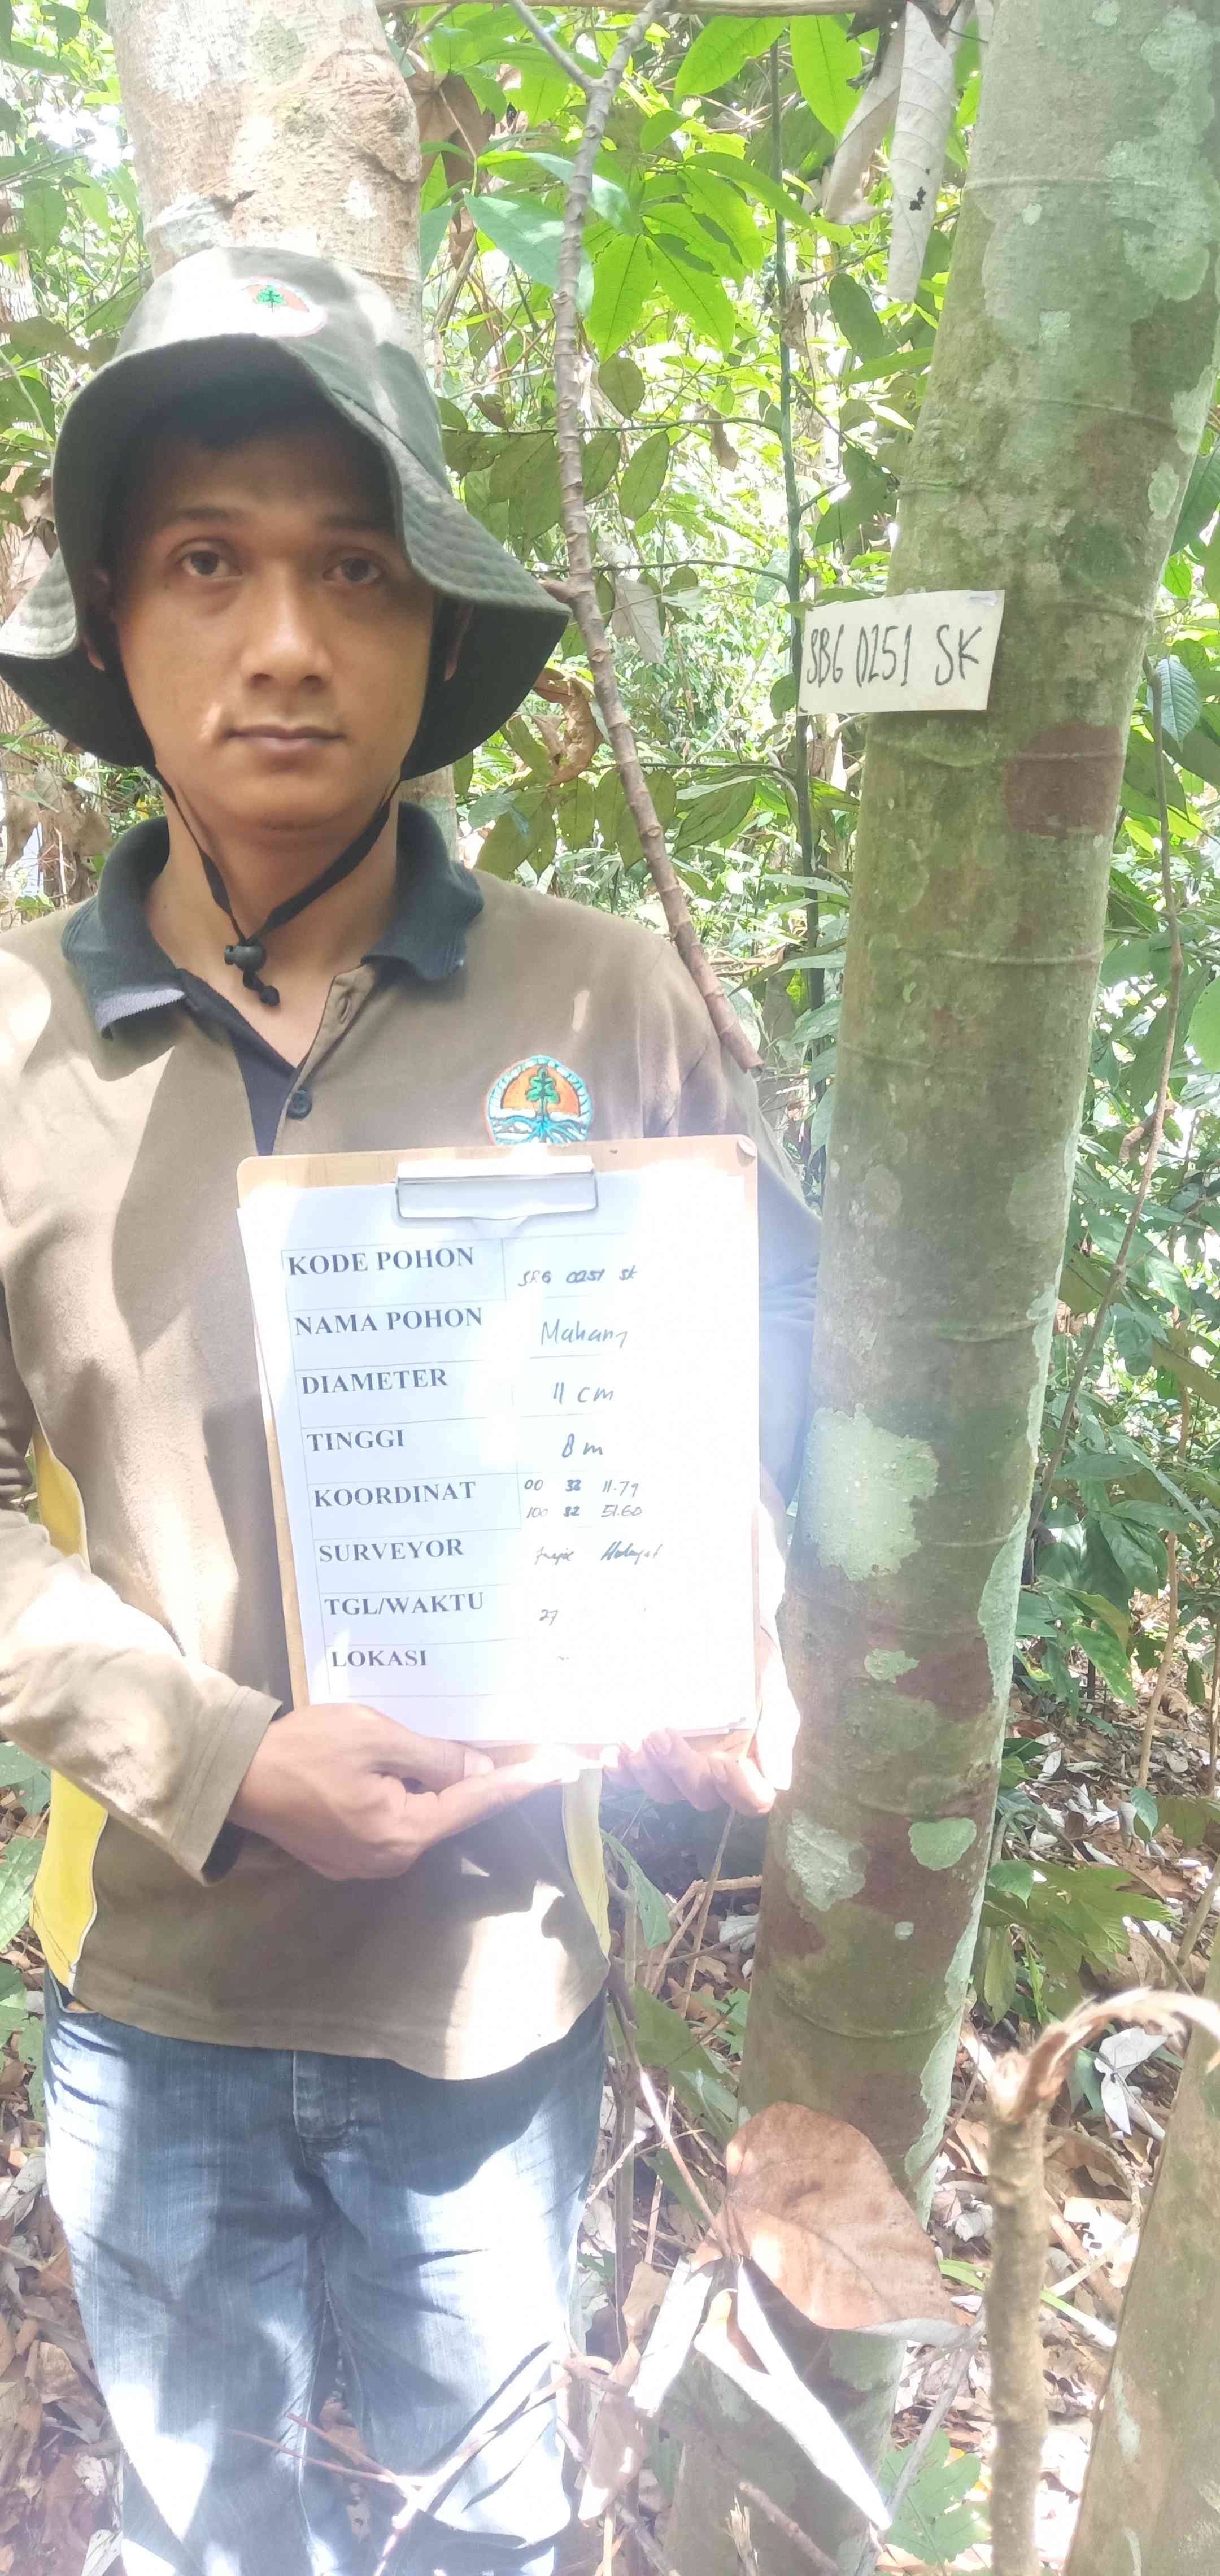 SBG 0251 SK
KODE POHON SBG 0251 SK
NAMA POHON Mahang
DIAMETER 11 cm
TINGGI 8 m
KOORDINAT 00 33 11.79
100 32 51.60
SURVEYOR
TGL/WAKTU 27
LOKASI